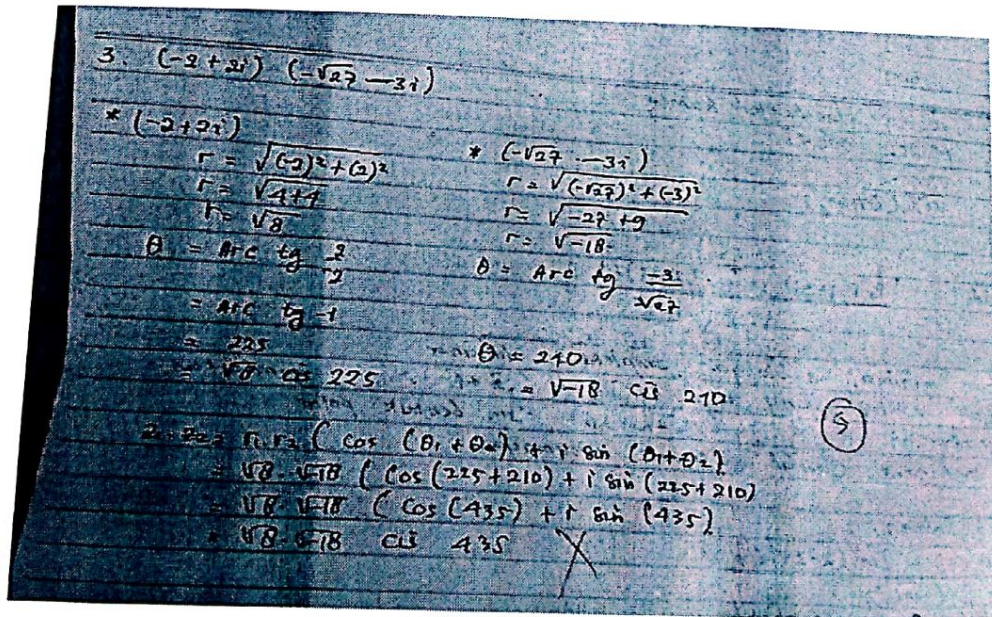 3. (-2 + 2i) (-√27 - 3i)
* (-2+2i)
r = √(-2)² + (2)²
r = √4+4
r = √8
θ = Arc tg 2/2
= Arc tg -1
= 225
= √8 cis 225
* (-√27 - 3i)
r = √(-√27)² + (-3)²
r = √-27 + 9
r = √-18
θ = Arc tg -3/√27
θ = 240
= √-18 cis 210
5
r1.r2 (cos (θ1 + θ2) + i sin (θ1+θ2)
= √8 . √-18 (cos (225+210) + i sin (225+210)
= √8 . √-18 (cos (435) + i sin (435)
= √8 . √-18 cis 435